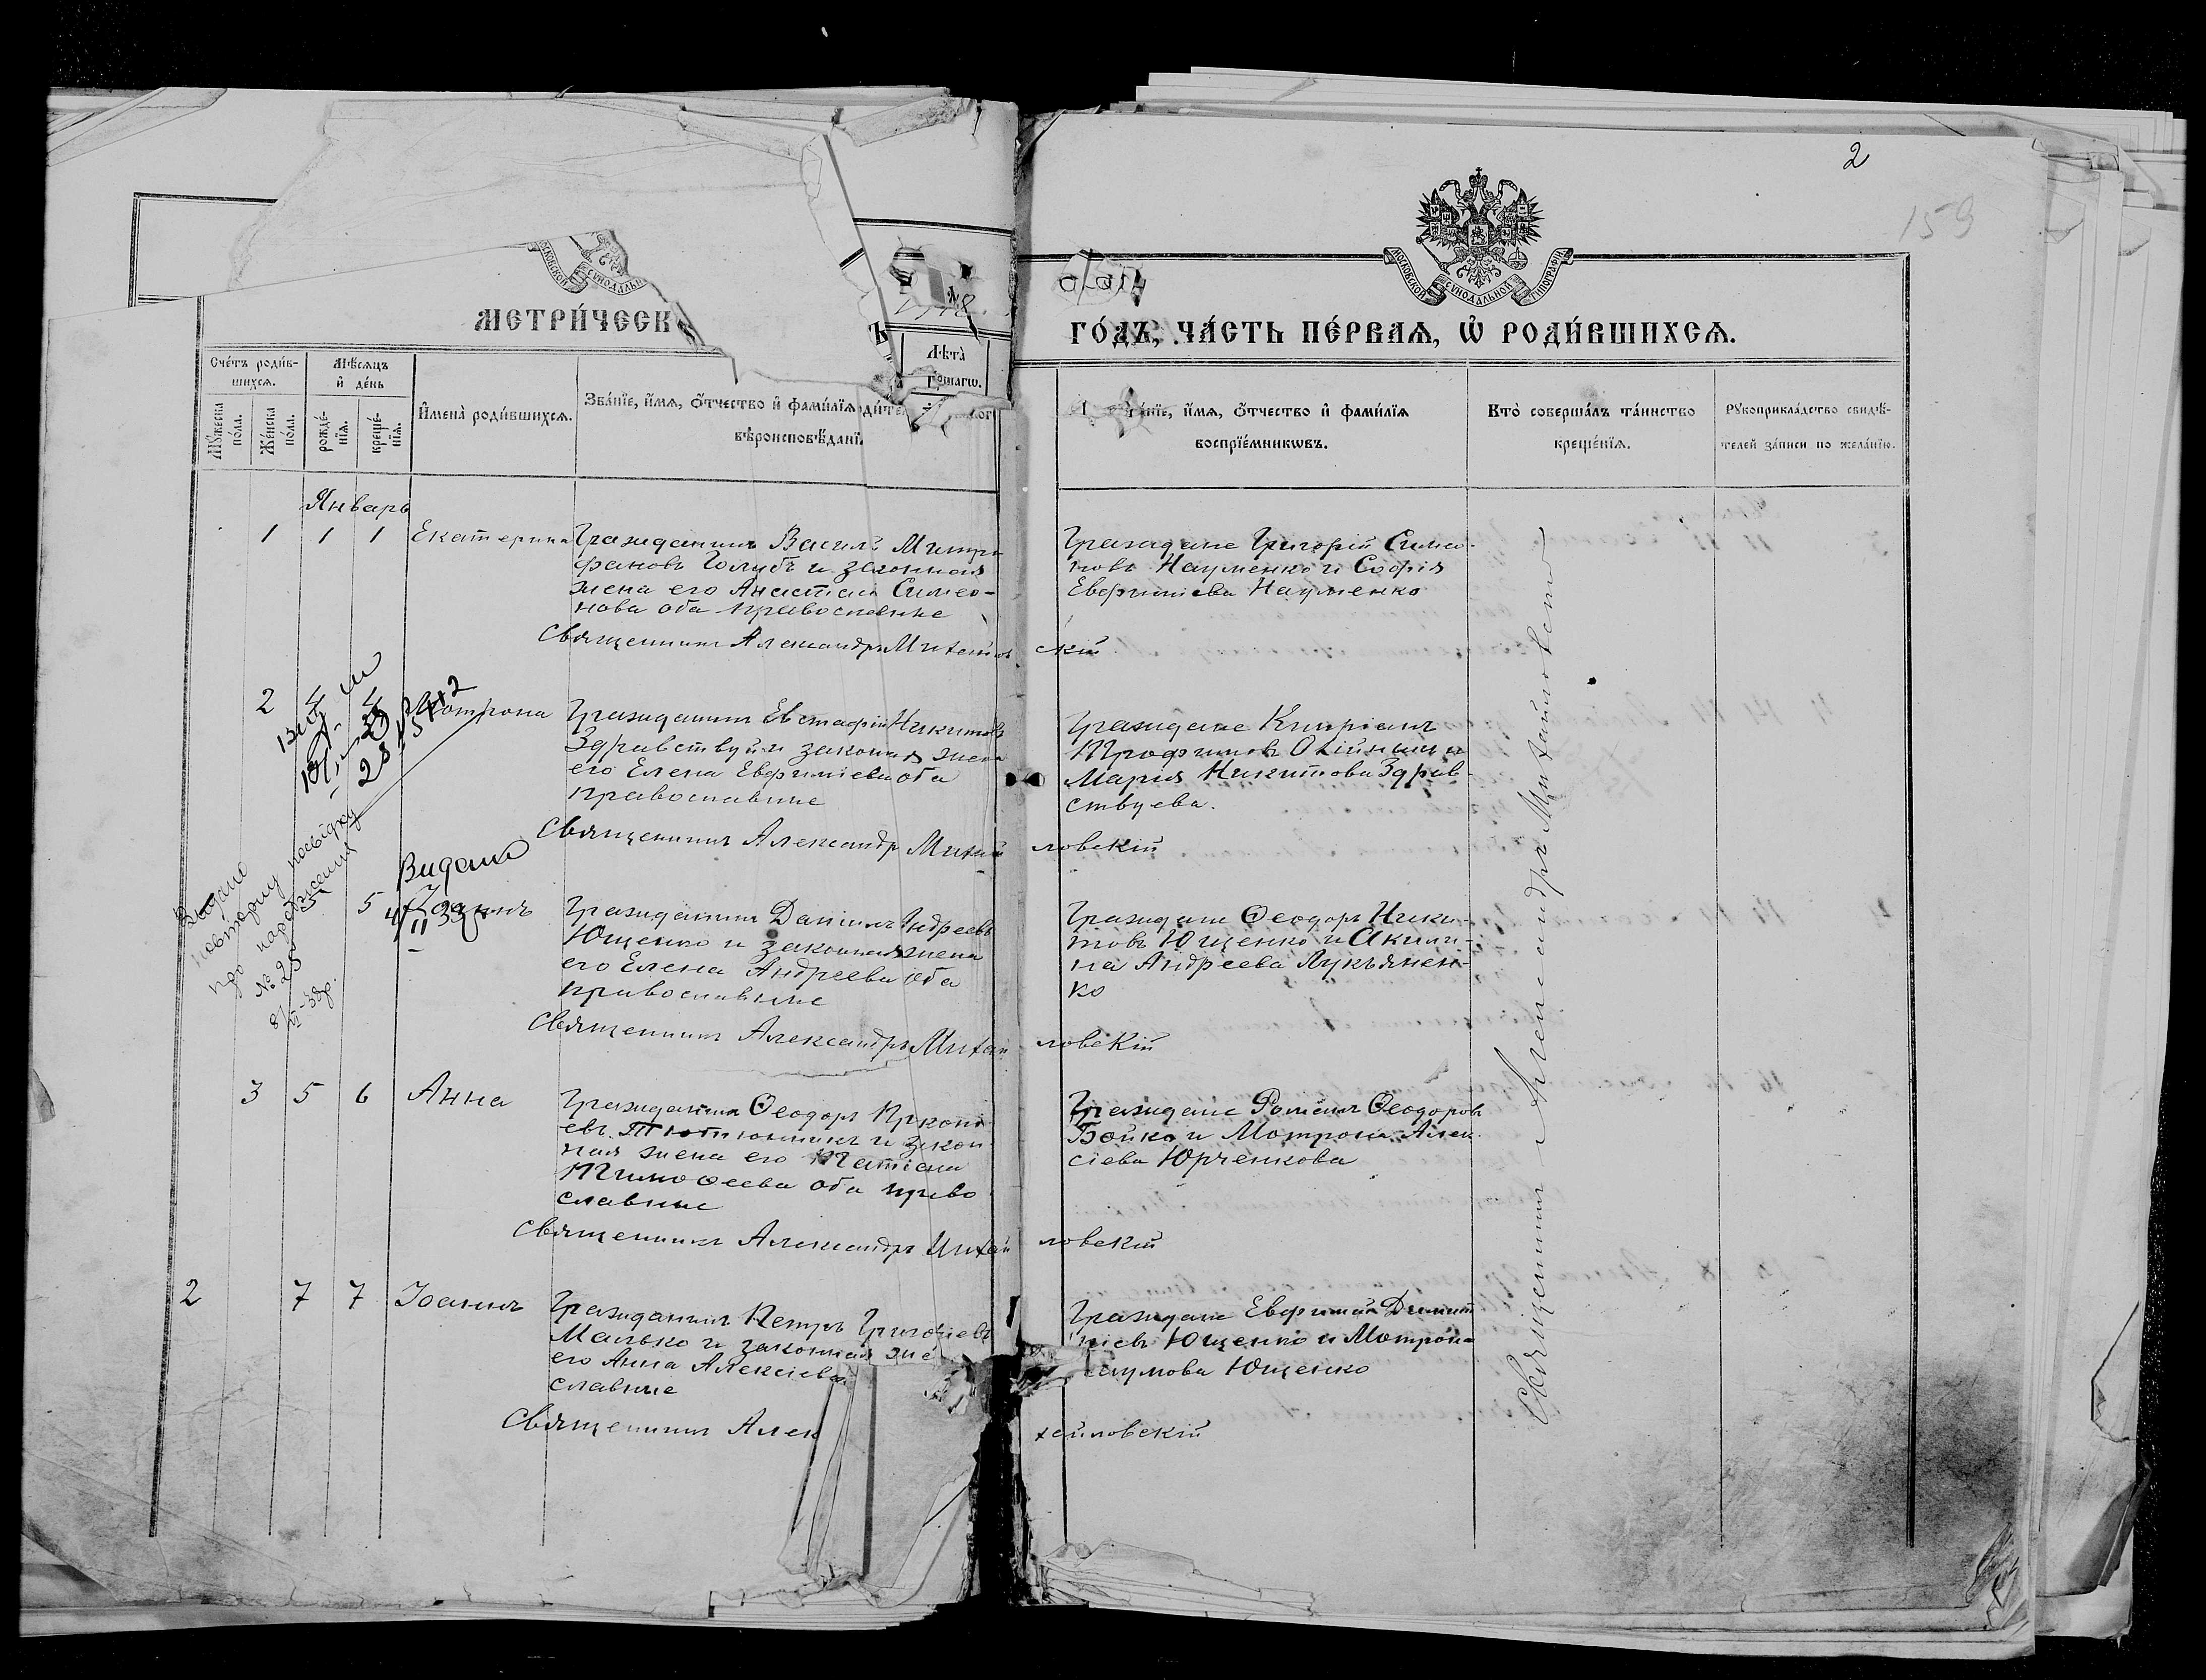 2
159
МОСКОВСКОЙ СѴНОДАЛЬН
МОСКОВСКОЙ СѴНОДАЛЬНОЙ ТИПОГРАФІИ
МЕТРИ́ЧЕСК
1918
ГО́ДЪ, ЧА́СТЬ ПЕ́РВАѦ, Ѡ҆ РОДИ́ВШИХСѦ.
Сче́тъ роди́в-
шихсѧ.
Мѣ́сѧцъ
и҆ де́нь
Мꙋ́жеска по́ла.
Же́нска по́ла.
рожде́-
нїѧ.
креще́-
нїѧ.
И҆мена̀ роди́вшихсѧ.
Зва́нїе, и҆́мѧ, ѻ҆́тчество и҆ фами́лїѧ роди́те
вѣроисповѣ́данї
Лѣта̀
Зва́нїе, и҆́мѧ, ѻ҆́тчество и҆ фами́лїѧ
воспрїе́мникѡвъ.
Кто̀ соверша́лъ та́инство
креще́нїѧ.
Рꙋкоприкла́дство свидѣ́-
телей за́писи по жела́нїю.
Январь
1 1 1 Екатерина
Гражданинъ Василій Митро-
фановъ Голубъ и законная
жена его Анастасія Симео-
нова оба православные
Граждане Григорій Симео-
новъ Науменко и Софія
Евфиміева Науменко
Священникъ Александръ Михайловскій
2 4 4 Мотрона
Гражданинъ Евстафій Никитовъ
Здравствуй и законная жена
его Елена Евфиміева оба
православные
Граждане Кипріанъ
Трофимовъ Олійникъ и
Марія Никитова Здрав-
ствуева.
Священникъ Александръ Михайловскій
Видано
повторну посвідку
про народження
№ 25
Видано
4/II 33
5 5 Іоаннъ
Гражданинъ Даніилъ Андреевъ
Ющенко и законная жена
его Елена Андреева оба
православные
Граждане Ѳеодоръ Ники-
товъ Ющенко и Акили-
на Андреева Лукъянен-
ко
Священникъ Александръ Михайловскій
3 5 6 Анна
Гражданинъ Ѳеодоръ Прокопі-
евъ Тютюнникъ и закон-
ная жена его Татіана
Тимоѳеева оба право
славные
Граждане Романъ Ѳеодоровъ
Бойко и Мотрона Алек-
сіева Юрченкова
Священникъ Александръ Михайловскій
2 7 7 Іоаннъ
Гражданинъ Петръ Григоріевъ
Малько и законная же
его Анна Алексіева
славные
Граждане Евфимій Димит
ріевъ Ющенко и Мотрон-
аумова Ющенко
Священникъ Алек хайловскій
Священникъ Александръ Михайловскій